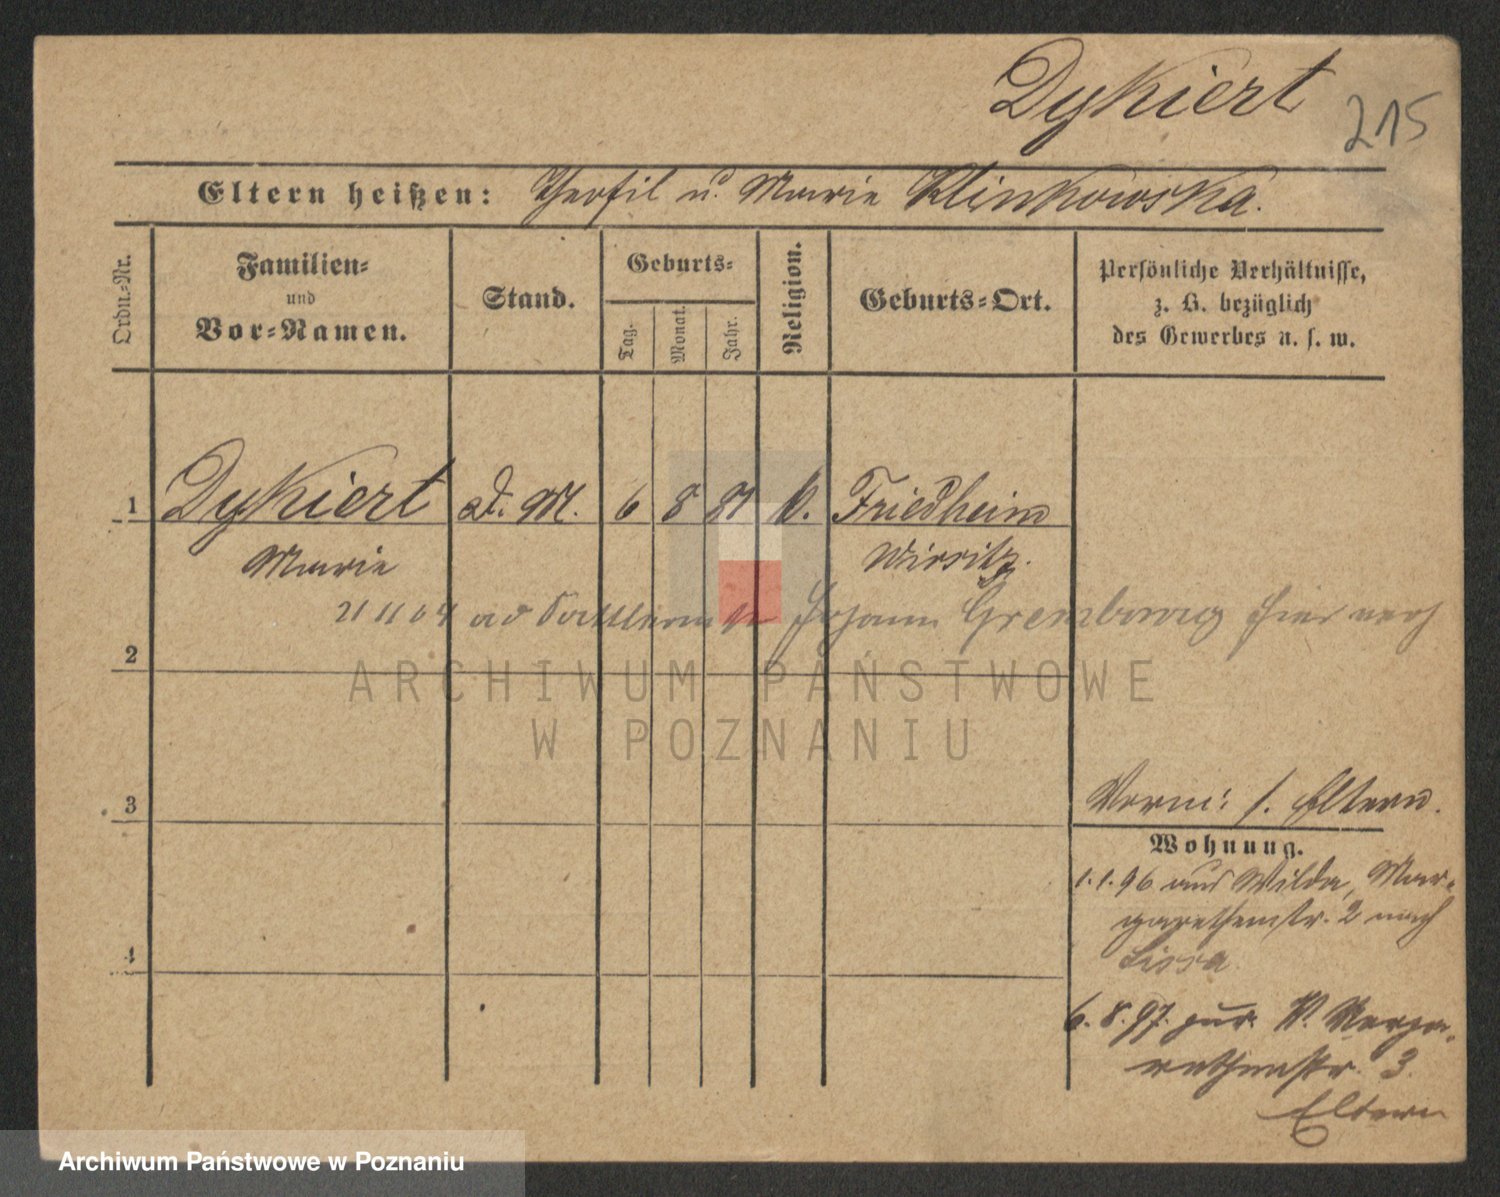 Dykiert
215
Eltern heißen: Theofil u. Marie Klinkowska.
Ordn.-Nr.
Familien-
und
Vor-Namen.
Stand.
Geburts-
Tag.
Monat.
Jahr.
Religion.
Geburts-Ort.
Persönliche Verhältnisse,
z. B. bezüglich
des Gewerbes u. s. w.
1 Dykiert D. M. 6 8 81 k. Friedheim
Marie Wirsitz.
21 11 04 Johann Grembowag hier verh
2
ARCHIWUM PAŃSTWOWE
W POZNANIU
3
Verm: s. Eltern.
Wohnung.
1.1.96 aus Wilda, Mar-
garethenstr. 2 nach
Lissa
4
6.8.97. zur. W. Marga-
rethenstr. 3.
Eltern
Archiwum Państwowe w Poznaniu